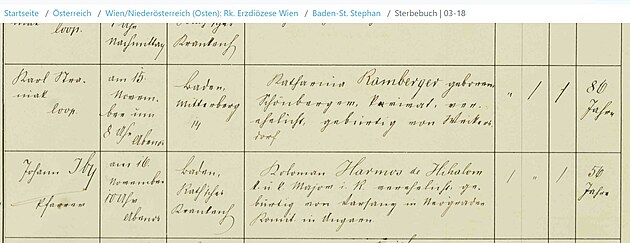 Startseite / Österreich / Wien/Niederösterreich (Osten): Rk. Erzdiözese Wien / Baden-St. Stephan / Sterbebuch | 03-18
loop.
Nachmittag
Krankenh
Karl
loop.
am 15.
Novem-
ber um
8 Uhr Abends
Baden,
Mitterberg
14
Katharina Ramberger geborene
Schönberger, Privat, ver-
ehelicht, gebürtig von Weikers-
dorf
" / 1
86
Jahre
Johann
Pfarrer
am 16.
November
10 Uhr
Abends
Baden,
Rath'sches
Krankenh
Koloman Harmos de Hihalom
k. u. k. Major i. R. verehelicht, ge-
bürtig von in Neograder
Komit in Ungarn
/ " 1
56
Jahre